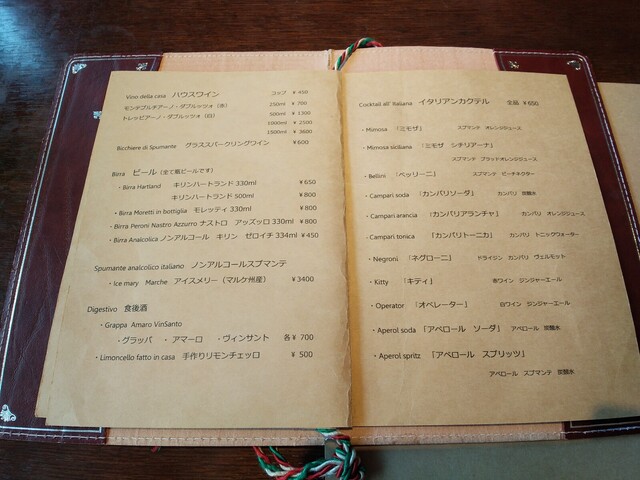 Vino della casa ハウスワイン コップ ¥450
モンテプルチアーノ・ダブルッツォ（赤） 250ml ¥ 700
トレッビアーノ・ダブルッツォ（白） 500ml ¥ 1300
1000ml ¥ 2500
1500ml ¥ 3600
Bicchiere di Spumante グラススパークリングワイン ¥600
Birra ビール（全て瓶ビールです）
・Birra Hartland キリンハートランド 330ml ¥650
キリンハートランド 500ml ¥800
・Birra Moretti in bottiglia モレッティ 330ml ¥800
・Birra Peroni Nastro Azzurro ナストロ アッズッロ 330ml ¥800
・Birra Analcolica ノンアルコール キリン ゼロイチ 334ml ¥450
Spumante analcolico italiano ノンアルコールスプマンテ
・Ice mary Marche アイスメリー（マルケ州産） ¥3400
Digestivo 食後酒
・Grappa Amaro VinSanto
・グラッパ ・アマーロ ・ヴィンサント 各¥ 700
・Limoncello fatto in casa 手作りリモンチェッロ ¥ 500
Cracktail all' Italiana イタリアンカクテル 全品 ¥650
・Mimosa 「ミモザ」 スプマンテ オレンジジュース
・Mimosa siciliana 「ミモザ シチリアーナ」
スプマンテ ブラッドオレンジジュース
・Bellini 「ベッリーニ」 スプマンテ ピーチネクター
・Campari soda 「カンパリソーダ」 カンパリ 炭酸水
・Campari arancia 「カンパリアランチャ」 カンパリ オレンジジュース
・Campari tonica 「カンパリトーニカ」 カンパリ トニックウォーター
・Negroni 「ネグローニ」 ドライジン カンパリ ヴェルモット
・Kitty 「キティ」 赤ワイン ジンジャーエール
・Operator 「オペレーター」 白ワイン ジンジャーエール
・Aperol soda 「アペロール ソーダ」 アペロール 炭酸水
・Aperol spritz 「アペロール スプリッツ」
アペロール スプマンテ 炭酸水